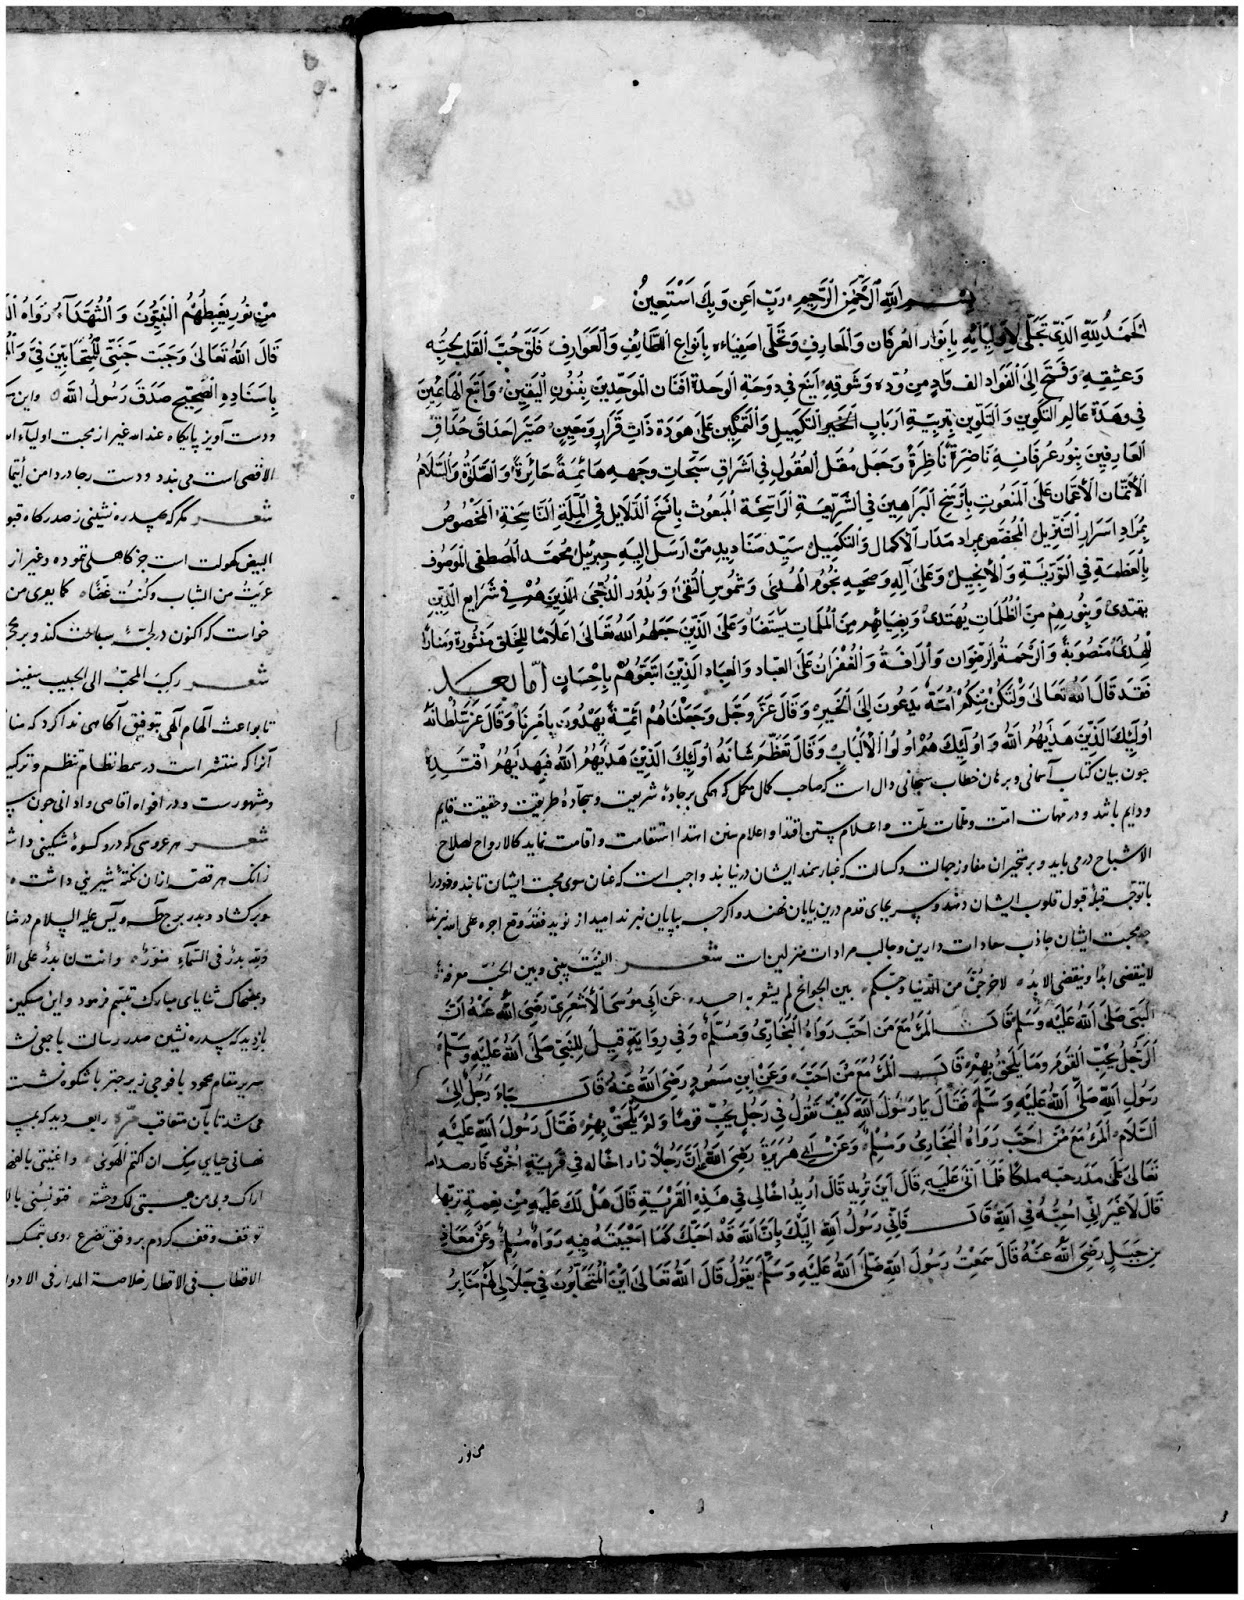 بِسْمِ اللّٰهِ الرَّحْمٰنِ الرَّحِيمِ رَبِّ اَعِنْ وَبِكَ اَسْتَعِينُ
اَلْحَمْدُ لِلّٰهِ الَّذِي تَجَلّٰى لِاَوْلِيَائِهِ بِاَنْوَارِ الْعِرْفَانِ وَالْمَعَارِفِ وَتَحَلّٰى اَصْفِيَاءَه بِاَنْوَاعِ اللَّطَائِفِ وَالْعَوَارِفِ فَلَقَ حَبَّ الْقَلْبِ بِحُبِّهِ
وَعِشْقِهِ وَفَتَحَ اِلَى الْفُوَادِ الف فَادٍ مِنْ وُدِّه وَشَوْقِهِ اَيْنَعَ فِي دَوْحَةِ الْوَحْدَةِ اَفْنَانَ الْمُوَحِّدِينَ بِفُنُونِ الْيَقِينِ وَ الْهَائِمِينَ
فِي وَهْدَةِ عَالَمِ التَّكْوِينِ وَالتَّلْوِينِ بِتَرْبِيَةِ اَرْبَابِ التَّكْمِيلِ وَالتَّمْكِينِ عَلٰى ذَاتِ قَرَارٍ وَمَعِينٍ صَيَّرَ اَحْدَاقَ حُذَّاقِ
الْعَارِفِينَ بِنُورِ عِرْفَانِهِ نَاضِرَةً نَاظِرَةً وَجَعَلَ مُقَلَ الْعُقُولِ فِي اَشْرَاقِ سُبُحَاتِ وَجْهِهِ هَائِمَةً حَائِرَةً وَالصَّلٰوةُ وَالسَّلَامُ
الْاَتَمَّانِ الْاَعَمَّانِ عَلَى الْمَنْعُوتِ بِاَرْسَخِ الْبَرَاهِينِ فِي الشَّرِيعَةِ الرَّاسِخَةِ الْمَبْعُوثِ بِاَنْسَخِ الدَّلَايِلِ فِي الْمِلَّةِ النَّاسِخَةِ الْمَخْصُوصِ
بِمُرَادِ اَسْرَارِ التَّنْزِيلِ مَدَارِ الْاِكْمَالِ وَالتَّكْمِيلِ سَيِّدِ صَنَادِيدِ مَنْ اُرْسِلَ اِلَيْهِ جِبْرِيلُ مُحَمَّدٍ الْمُصْطَفٰى الْمَوْصُوفِ
بِالْعَظَمَةِ فِي التَّوْرٰيةِ وَالْاِنْجِيلِ وَعَلٰى آلِهِ وَصَحْبِهِ نُجُومِ الْهُدٰى وَشُمُوسِ التُّقٰى وَبُدُورِ الدُّجٰى الَّذِينَ هُمْ فِي شَرَايِعِ الدِّينِ
يهتدى وَبِنُورِهِمْ مِنَ الظُّلُمَاتِ يُهْتَدٰى وَبِضِيَائِهِمْ مِنَ يُسْتَضَا وَعَلَى الَّذِينَ جَعَلَهُمُ اللّٰهُ تَعَالٰى اَعْلَامًا لِلْخَلْقِ مَنْشُورَةً وَمَنَارًا
لِلْهُدٰى مَنْصُوبَةً وَالرَّحْمَةُ الرِّضْوَانُ وَالرَّافَةُ وَالْغُفْرَانُ عَلَى الْعِبَادِ وَالْعُبَّادِ الَّذِينَ اتَّبَعُوهُمْ بِاِحْسَانٍ اَمَّا بَعْدُ
فَقَدْ قَالَ اللّٰهُ تَعَالٰى وَلْتَكُنْ مِنْكُمْ اُمَّةٌ يَدْعُونَ اِلَى الْخَيْرِ وَقَالَ عَزَّ وَجَلَّ وَجَعَلْنَاهُمْ اَئِمَّةً يَهْدُونَ بِاَمْرِنَا وَقَالَ عَزَّ سُلْطَانُهُ
اُولٰئِكَ الَّذِينَ هَدٰيهُمُ اللّٰهُ وَاُولٰئِكَ هُمْ اُولُوا الْاَلْبَابِ وَقَالَ تَعَظَّمَ شَانُهُ اُولٰئِكَ الَّذِينَ هَدٰيهُمُ اللّٰهُ فَبِهُدٰيهُمُ اقْتَدِهْ
چون بیان کتاب آسمانی و برهان خطاب سبحانی دال است که صاحب کمال مکمل که همگی بر جادهٔ شریعت و سجادهٔ طریقت و حقیقت قایم
و دایم باشد و در مهمات امت و ملمات ملت و اعلام سنن اقتدا و اعلام سنن اهتدا استقامت و اقامت نماید کالارواح لصلاح
الاشباح در می باید و بر متحیران مفاوز جهالت و کسالت که غبار سمند ایشان در نیابند واجب است که عنان سوی محبت ایشان تابند و خود را
با توجه قبلهٔ قبول قلوب ایشان دهند و قدم درین بیابان نهند و اگر چه بپایان نبرند امید از نوید فقد وقع اجره علی الله نبرند
چه محبت ایشان جاذب سعادات دارین و جالب مرادات منزلین است شعر الفیت بینی وبین الحب معرفة
لا ینقضی ابدا وینقضی الابد لاخرجن من الدنیا وحبکم بین الجوانح لم یشعر به احد عَنْ اَبِي مُوسَى الْاَشْعَرِيِّ رَضِيَ اللّٰهُ عَنْهُ اَنَّ
النَّبِيَّ صَلَّى اللّٰهُ عَلَيْهِ وَسَلَّمَ قَالَ الْمَرْءُ مَعَ مَنْ اَحَبَّ رَوَاهُ الْبُخَارِيُّ وَمُسْلِمٌ وَفِي رِوَايَةٍ قِيلَ لِلنَّبِيِّ صَلَّى اللّٰهُ عَلَيْهِ وَسَلَّمَ
الرَّجُلُ يُحِبُّ الْقَوْمَ وَمَا يَلْحَقُ بِهِمْ قَالَ الْمَرْءُ مَعَ مَنْ اَحَبَّ وَعَنِ ابْنِ مَسْعُودٍ رَضِيَ اللّٰهُ عَنْهُ قَالَ جَاءَ رَجُلٌ اِلٰى
رَسُولِ اللّٰهِ صَلَّى اللّٰهُ عَلَيْهِ وَسَلَّمَ فَقَالَ يَا رَسُولَ اللّٰهِ كَيْفَ تَقُولُ فِي رَجُلٍ يُحِبُّ قَوْمًا وَلَمْ يَلْحَقْ بِهِمْ فَقَالَ رَسُولُ اللّٰهِ عَلَيْهِ
السَّلَامُ الْمَرْءُ مَعَ مَنْ اَحَبَّ رَوَاهُ الْبُخَارِي وَمُسْلِمٌ وَعَنْ اَبِي هُرَيْرَةَ رَضِيَ اللّٰهُ اَنَّ رَجُلًا زَارَ اَخًا لَه فِي قَرْيَةٍ اُخْرٰى فَارصد الله
تَعَالٰى عَلٰى مَدْرَجَتِه مَلَكًا فَلَمَّا اَتٰى عَلَيْهِ قَالَ اَيْنَ تُرِيدُ قَالَ اُرِيدُ اَخًا لِي فِي هٰذِهِ الْقَرْيَةِ قَالَ هَلْ لَكَ عَلَيْهِ مِنْ نِعْمَةٍ تَرُبُّهَا
قَالَ لَا غَيْرَ اَنِّي اُحِبُّهُ فِي اللّٰهِ قَالَ فَاِنِّي رَسُولُ اللّٰهِ اِلَيْكَ بِاَنَّ اللّٰهَ قَدْ اَحَبَّكَ كَمَا اَحْبَبْتَهُ فِيهِ رَوَاهُ مُسْلِمٌ وَعَنْ مُعَاذِ
بْنِ جَبَلٍ رَضِيَ اللّٰهُ عَنْهُ قَالَ سَمِعْتُ رَسُولَ اللّٰهِ صَلَّى اللّٰهُ عَلَيْهِ وَسَلَّمَ يَقُولُ قَالَ اللّٰهُ تَعَالٰى الْمُتَحَابُّونَ فِي جَلَالِي لَهُمْ مَنَابِرُ
من نور
مِنْ نُورٍ يَغْبِطُهُمُ النَّبِيُّونَ وَالشُّهَدَاءُ رَوَاهُ
قَالَ اللّٰهُ تَعَالٰى وَجَبَتْ مَحَبَّتِي لِلْمُتَحَابِّينَ فِيَّ
بِاِسْنَادِهِ الصَّحِيحِ صَدَقَ رَسُولُ اللّٰهِ
و دست آویز پایگاه عند الله غیر از محبت اولیاء
الاقصی است می بندد و دست رجا در دامن
شعر مگر که چه ره نشینی ز صدرگاه
البیض کهولت است جز کاهلی نموده و غیر از
عریت من الشباب وکنت غضا کما یعری من
خواست که اکنون در لجهٔ سباحت کند و بر
شعر رکب المحب الی الحبیب سفینة
تا بواعث الهام الهی بتوفیق آگاهی ندا کرد که
آنرا که منتشر است در سمط نظام تنظم و
و مشهور است و در افواه اقاصی و ادانی چون
شعر هر عروسی که در و کسوهٔ مشکینی
زانک هر قصه از ان نکتهٔ شیرینی داشت
و بدر برج طه ویس علیه السلام در
بدر فی السماء منور وانت لنا بدر علی
و بضحاک ثنایای مبارک تبسم فرمود و این مسکین
باز دید که سدره نشین صدر رسالت با جمعی
سریر مقام محمود با فوجی زیر چتر با شکوه نشست
می شد تا بآن متعاقب مرة رابعه دید که
نهانی حیایی منک ان اکتم الهوی واغنیتنی بالفهم
اراک وبی من هیبتی لک وحشة فتونسنی
توقف وقف کردم بر وفق تضرع روی تمسک
الاقطاب فی الاقطار خلاصة المدار فی الادوار
3